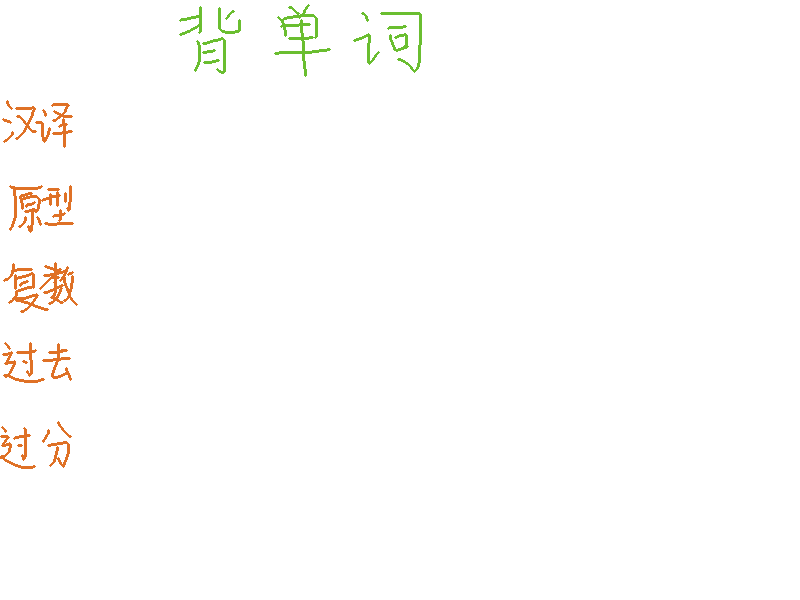 背单词
汉译
原型
复数
过去
过分